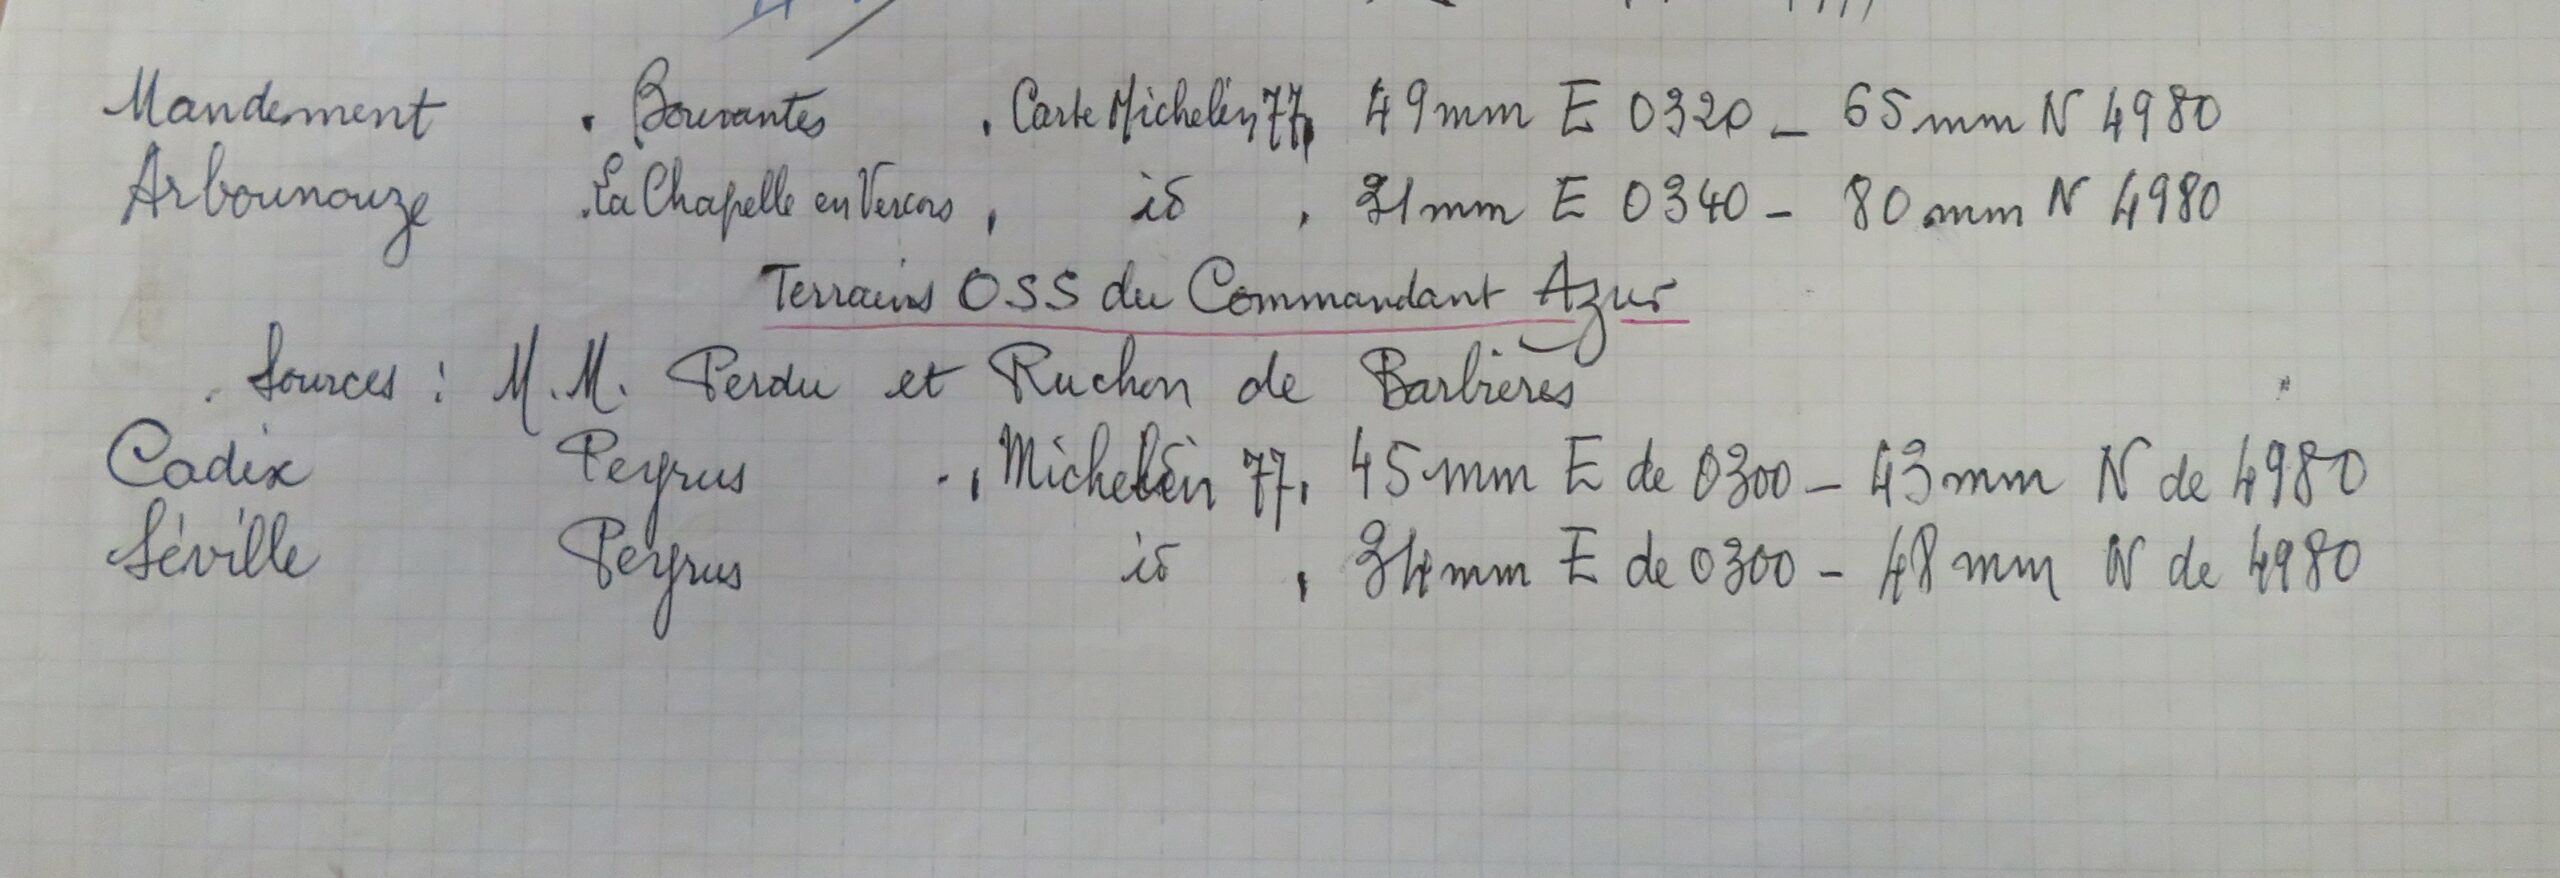 Mandement . Bouvantes . Carte Michelin 77, 49mm E 0320 - 65mm N 4980
Arbounouze . La Chapelle en Vercors , id , 31mm E 0340 - 80mm N 4980
Terrains OSS du Commandant Azur
. Sources : M.M. Perdu et Ruchon de Barbières
Cadix Peyrus . , Michelin 77, 45mm E de 0300 - 43mm N de 4980
Séville Peyrus id , 34mm E de 0300 - 48mm N de 4980